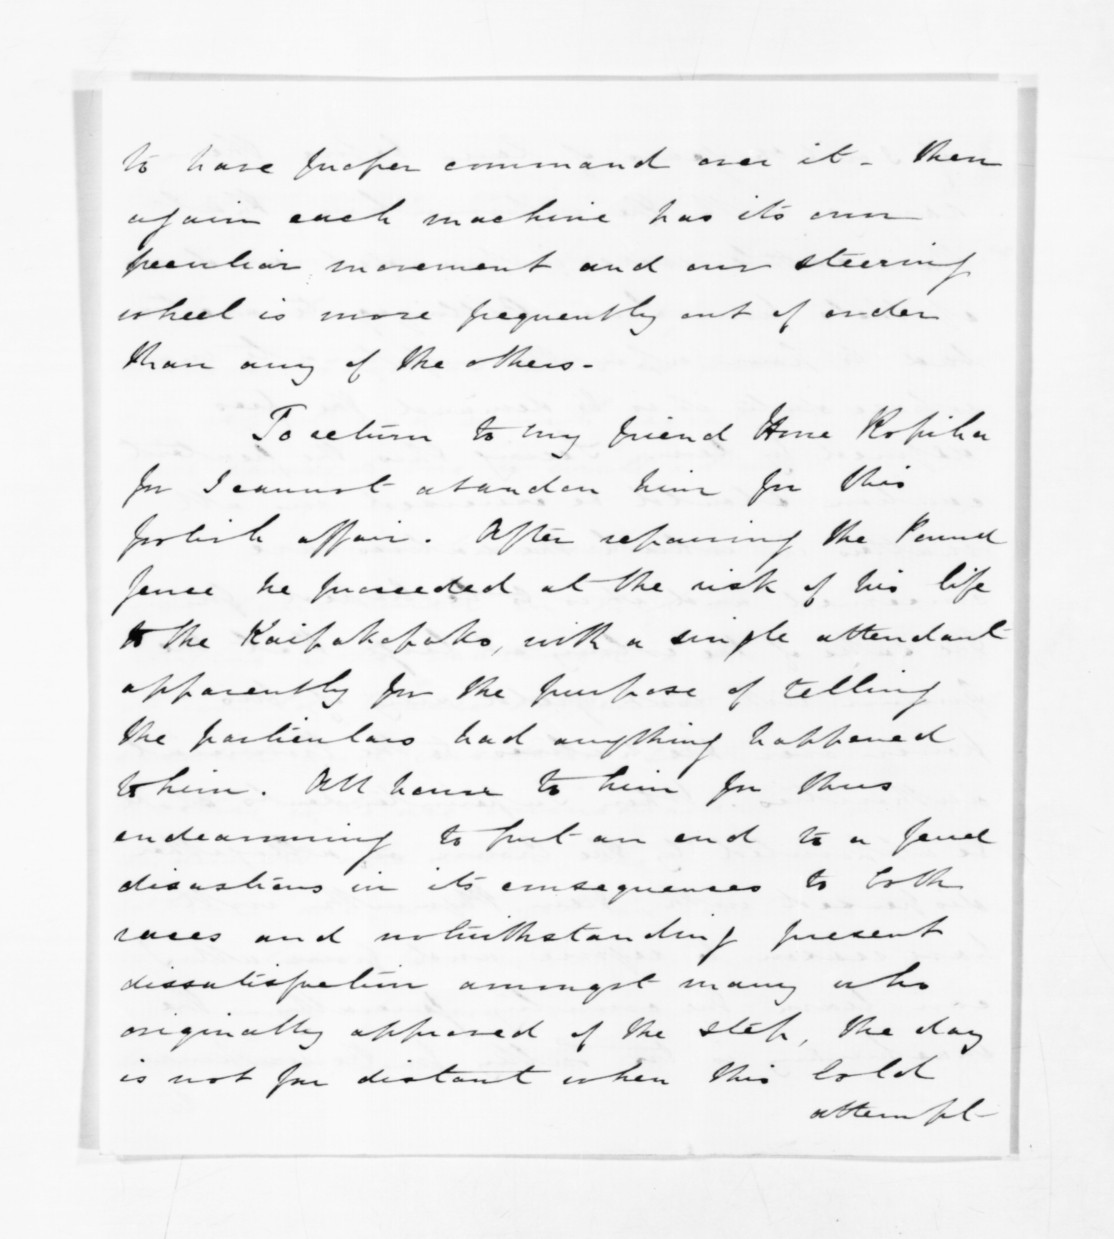 to have proper command over it - then
again each machine has its own
peculiar movement and our steering
wheel is more frequently out of order
than any of the others -
To return to my friend Hone Ropiha
for I cannot abandon him for this
foolish affair. After repairing the Pound
fence he proceeded at the risk of his life
to the Kaipakapako, with a single attendant
apparently for the purpose of telling
the particulars had anything happened
to him. All honor to him for thus
endeavouring to put an end to a feud
disastrous in its consequences to both
races and notwithstanding present
dissatisfaction amongst many who
originally approved of the step, the day
is not far distant when this bold
attempt